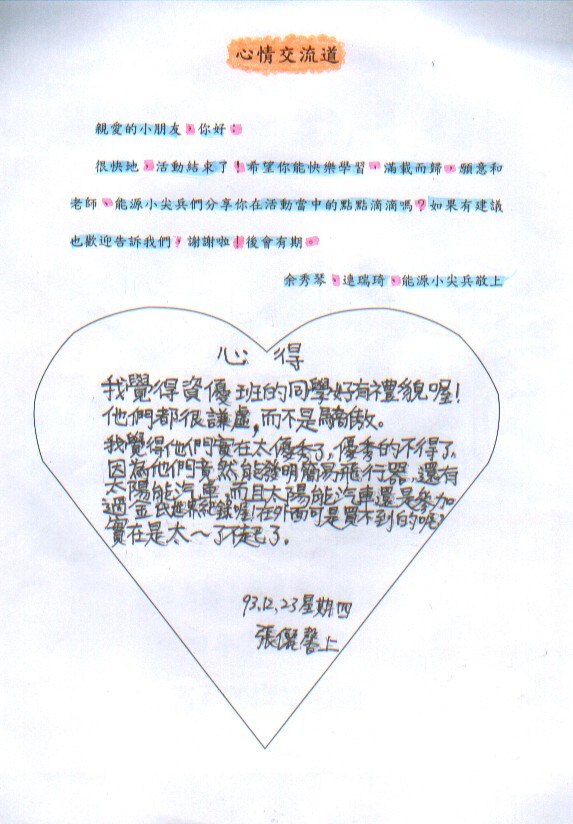 心情交流道
親愛的小朋友，你好：
很快地，活動結束了！希望你能快樂學習，滿載而歸，願意和
老師、能源小尖兵們分享你在活動當中的點點滴滴嗎？如果有建議
也歡迎告訴我們，謝謝啦！後會有期。
余秀琴、連瑞琦、能源小尖兵敬上
心得
我覺得資優班的同學好有禮貌喔！
他們都很謙虛，而不是驕傲。
我覺得他們實在太優秀了，優秀的不得了，
因為他們竟然能發明簡易飛行器，還有
太陽能汽車，而且太陽能汽車還是參加
過金氏世界紀錄喔！在外面可是買不到的喔！
實在是太～了不起了。
93.12.23星期四
張馨上